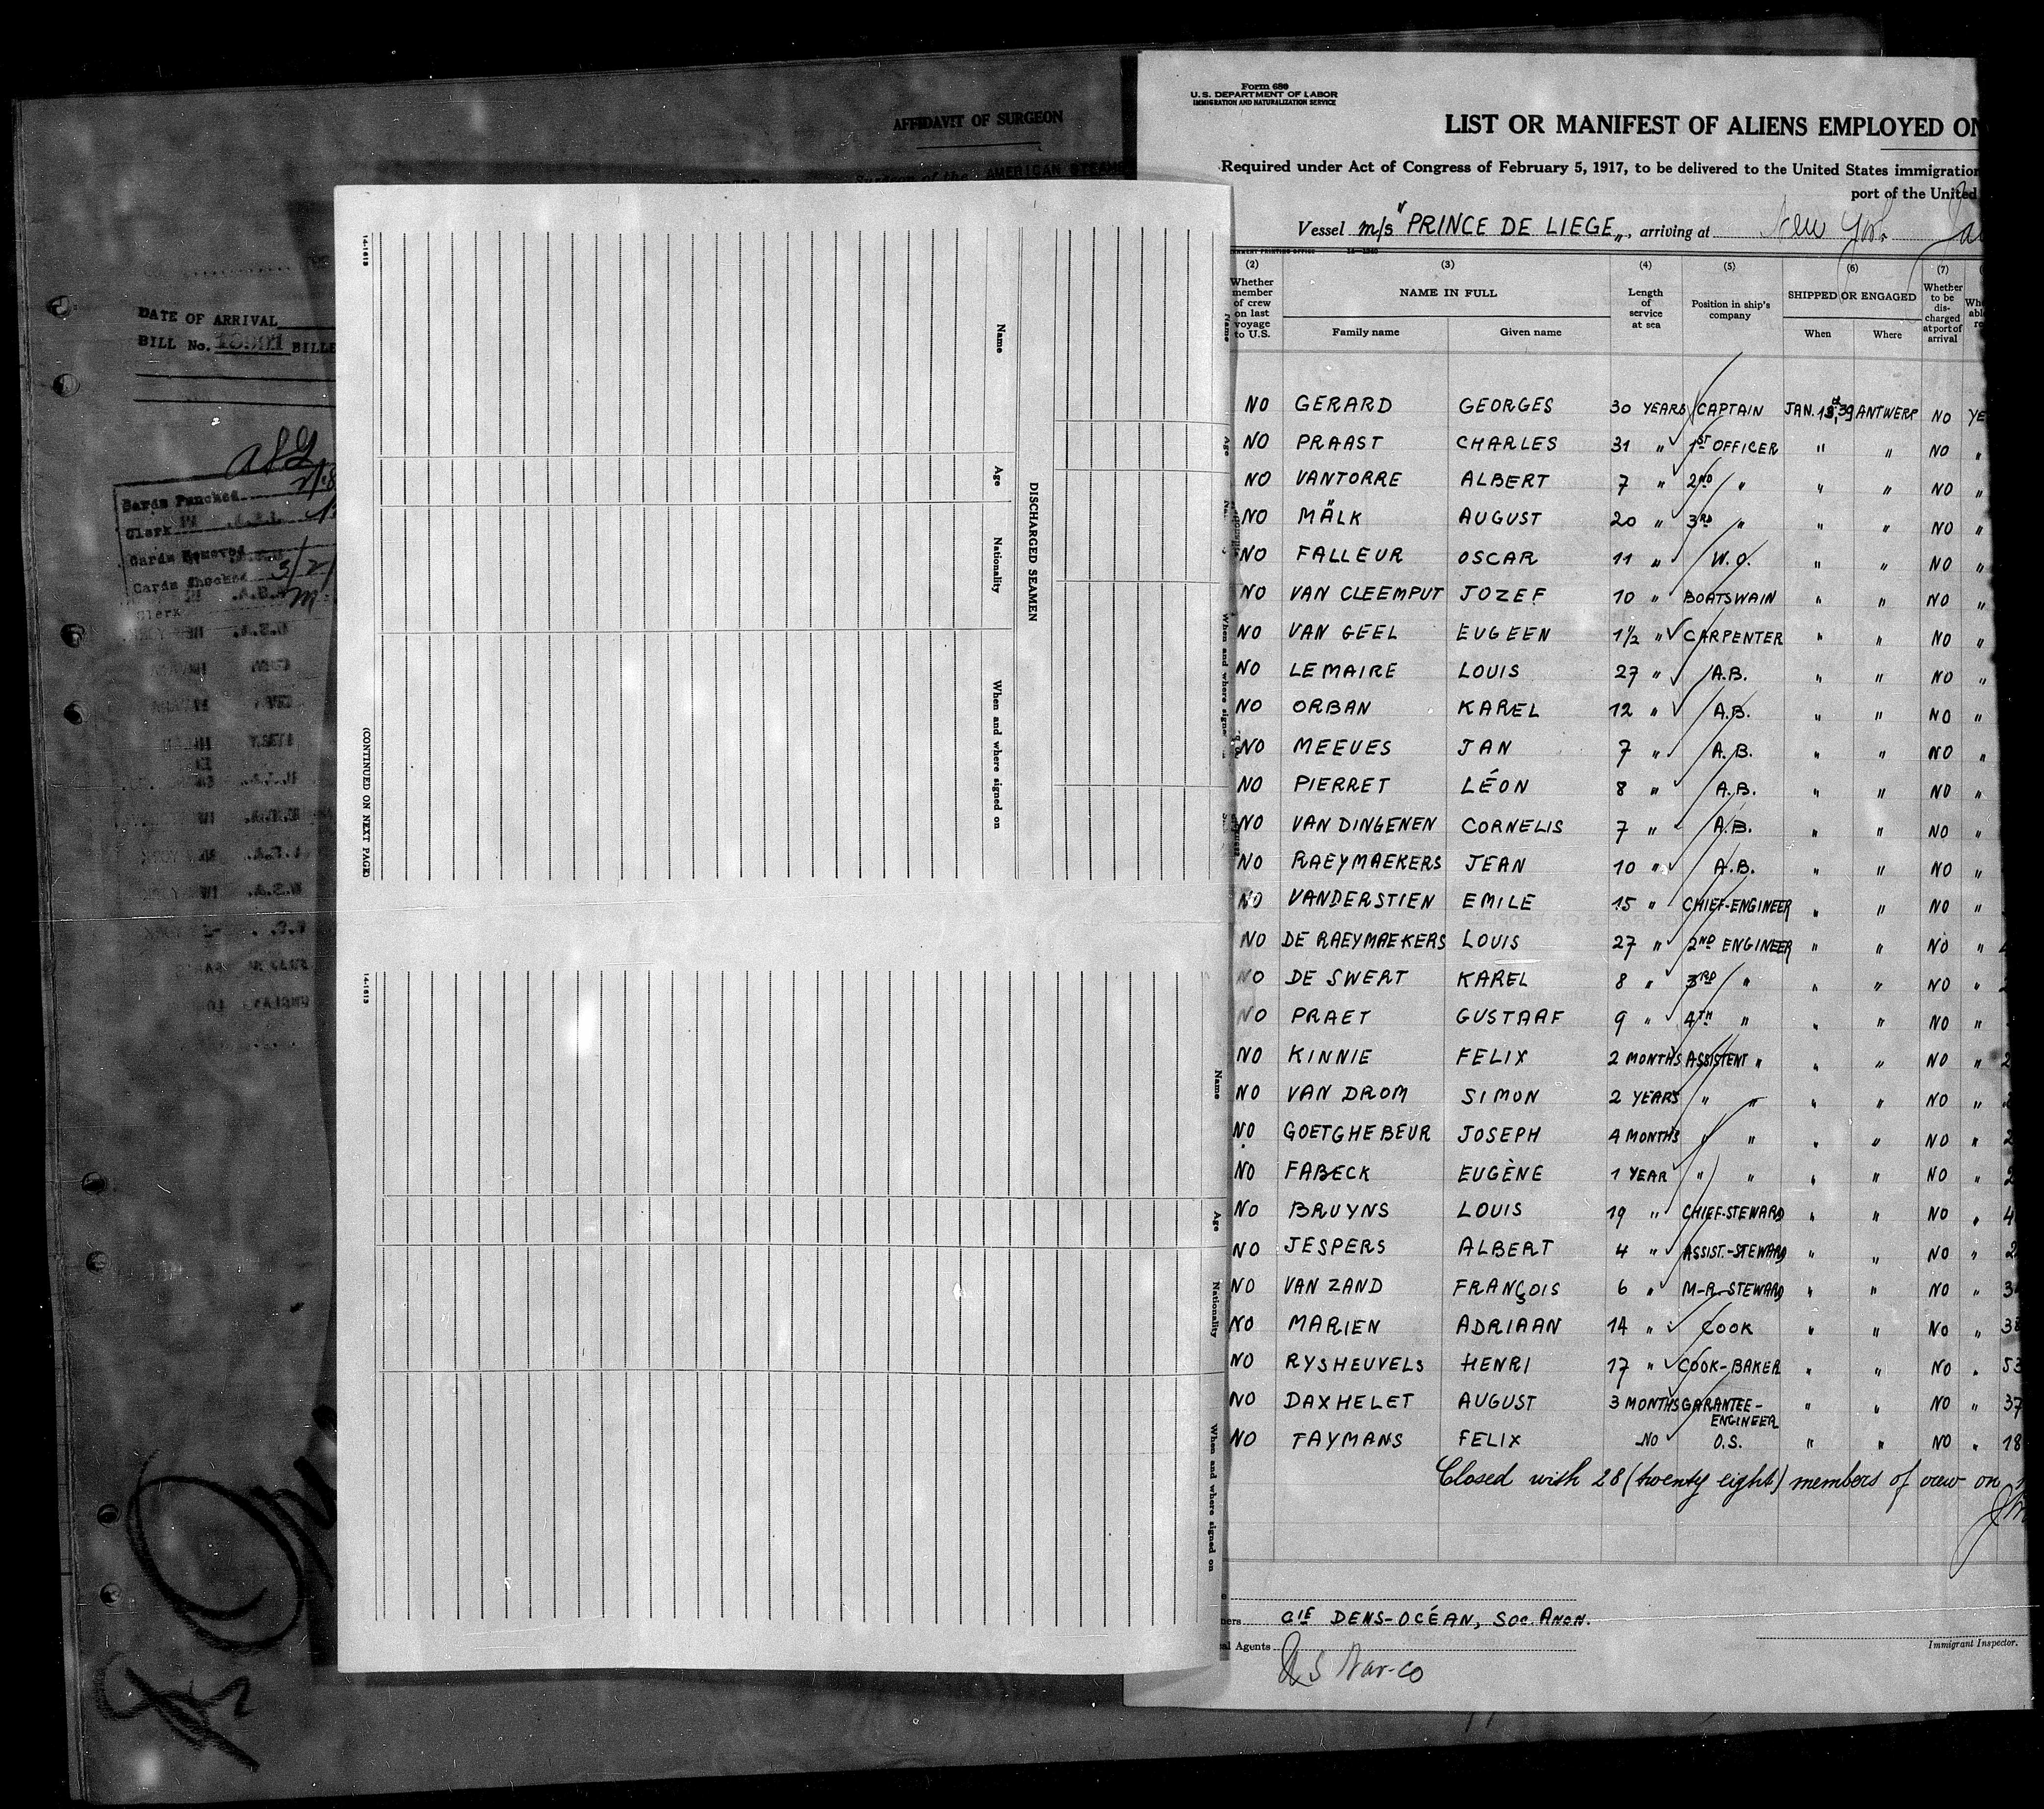 AFFIDAVIT OF SURGEON
Surgeon of the AMERICAN
DATE OF ARRIVAL
BILL No. BILLE
Cards Punched
Clerk
Cards Removed
Cards Checked 3/2/
Clerk
14-1613
Name
Age
Nationality
When and where signed on
DISCHARGED SEAMEN
(CONTINUED ON NEXT PAGE)
14-1613
Name
Age
Nationality
When and where signed on
Form 680
U.S. DEPARTMENT OF LABOR
IMMIGRATION AND NATURALIZATION SERVICE
LIST OR MANIFEST OF ALIENS EMPLOYED ON
Required under Act of Congress of February 5, 1917, to be delivered to the United States immigration
port of the United
Vessel m/s "PRINCE DE LIEGE", arriving at New York
(2) (3) (4) (5) (6) (7)
Whether member of crew on last voyage to U.S.
NAME IN FULL
Family name Given name
Length of service at sea
Position in ship's company
SHIPPED OR ENGAGED
When Where
Whether to be discharged at port of arrival
NO GERARD GEORGES 30 YEARS CAPTAIN JAN. 13th,39 ANTWERP NO YE
NO PRAAST CHARLES 31 " 1ST OFFICER " " NO "
NO VANTORRE ALBERT 7 " 2ND " " " NO "
NO MÄLK AUGUST 20 " 3RD " " " NO "
NO FALLEUR OSCAR 11 " W.O. " " NO "
NO VAN CLEEMPUT JOZEF 10 " BOATSWAIN " " NO "
NO VAN GEEL EUGEEN 1½ " CARPENTER " " NO "
NO LEMAIRE LOUIS 27 " A.B. " " NO "
NO ORBAN KAREL 12 " A.B. " " NO "
NO MEEVES JAN 7 " A.B. " " NO "
NO PIERRET LÉON 8 " A.B. " " NO "
NO VAN DINGENEN CORNELIS 7 " A.B. " " NO "
NO RAEYMAEKERS JEAN 10 " A.B. " " NO "
NO VANDERSTIEN EMILE 15 " CHIEF-ENGINEER " " NO "
NO DE RAEYMAEKERS LOUIS 27 " 2ND ENGINEER " " NO "
NO DE SWERT KAREL 8 " 3RD " " " NO "
NO PRAET GUSTAAF 9 " 4TH " " " NO "
NO KINNIE FELIX 2 MONTHS ASSISTENT " " " NO " 2
NO VAN DROM SIMON 2 YEARS " " " " NO "
NO GOETGHEBEUR JOSEPH 4 MONTHS " " " " NO " 2
NO FABECK EUGÈNE 1 YEAR " " " " NO " 2
NO BRUYNS LOUIS 19 " CHIEF-STEWARD " " NO " 4
NO JESPERS ALBERT 4 " ASSIST.-STEWARD " " NO " 2
NO VAN ZAND FRANÇOIS 6 " M-R.-STEWARD " " NO " 3
NO MARIEN ADRIAAN 14 " COOK " " NO " 38
NO RYSHEUVELS HENRI 17 " COOK-BAKER " " NO " 53
NO DAXHELET AUGUST 3 MONTHS GARANTEE-ENGINEER " " NO " 37
NO TAYMANS FELIX NO O.S. " " NO " 18
Closed with 28 (twenty eight) members of crew on
CIE DENS-OCÉAN, SOC. ANON.
Agents
Immigrant Inspector.
U S Nav-co